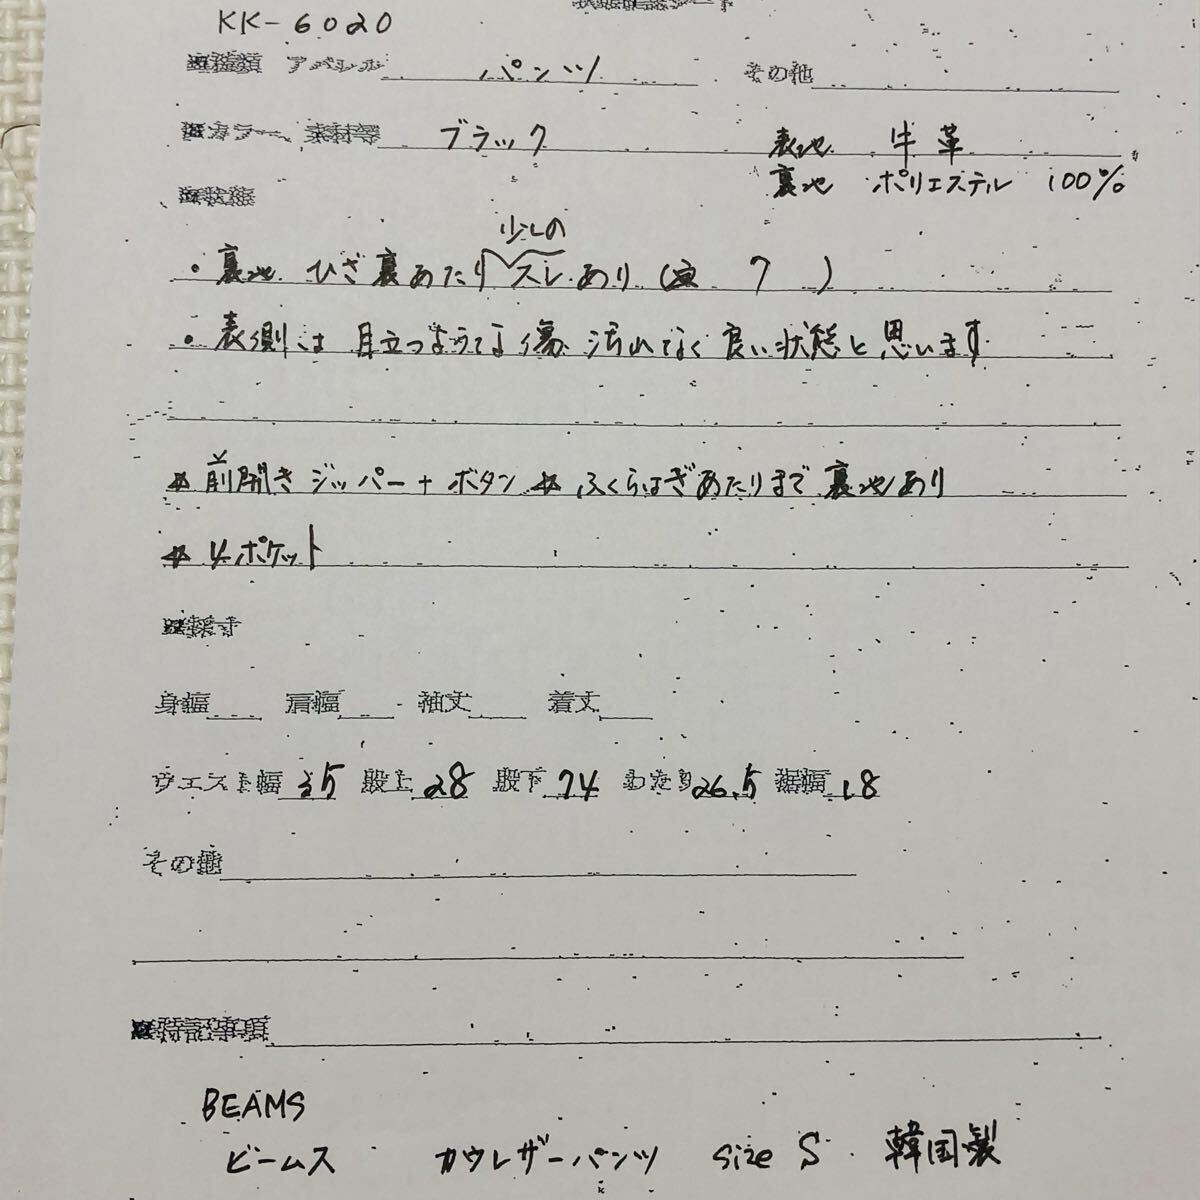 KK-6020
種類 アパレル パンツ その他
カラー、素材等 ブラック 表地 牛革
裏地 ポリエステル 100%
状態
少しの
・裏地 ひざ裏あたり スレあり ( 7 )
・表側は 目立つような傷 汚れなく 良い状態と思います
☆前開き ジッパー+ボタン ☆ふくらはぎあたりまで裏地あり
☆4ポケット
採寸
身幅 肩幅 袖丈 着丈
ウエスト幅 35 股上 28 股下 74 わたり 26.5 裾幅 18
その他
特記事項
BEAMS
ビームス カウレザーパンツ size S 韓国製